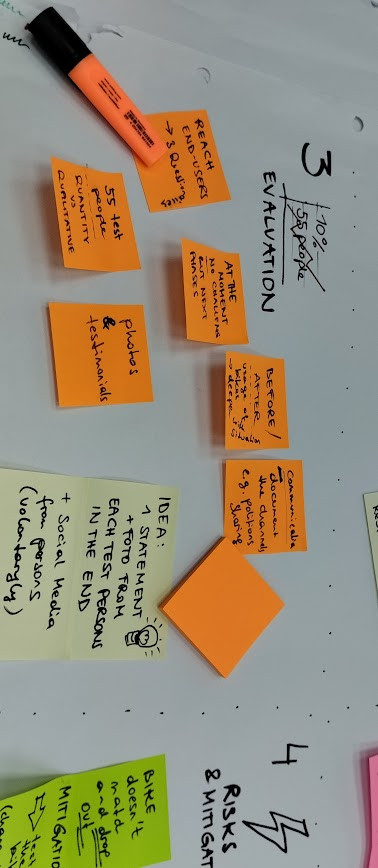 3
10%
55 people
EVALUATION
REACH
END-USERS
→ 3 Question
55 test
people
QUANTITY
VS
QUALITATIVE
AT THE
MOMENT
NO CHALLENG
BUT NEXT
PHASE
photos
&
testimonials
BEFORE/
AFTER
usage of
bikes
→ deeper
Communicatio
document
the channels
e.g.
sharing
IDEA:
1 STATEMENT
+ FOTO FROM
EACH TEST PERSONS
IN THE END
+ Social Media
from persons
(voluntaryly)
4
RISKS
& MITIGAT
BIKE
doesn't
match
and drop
out
MITIGATIO